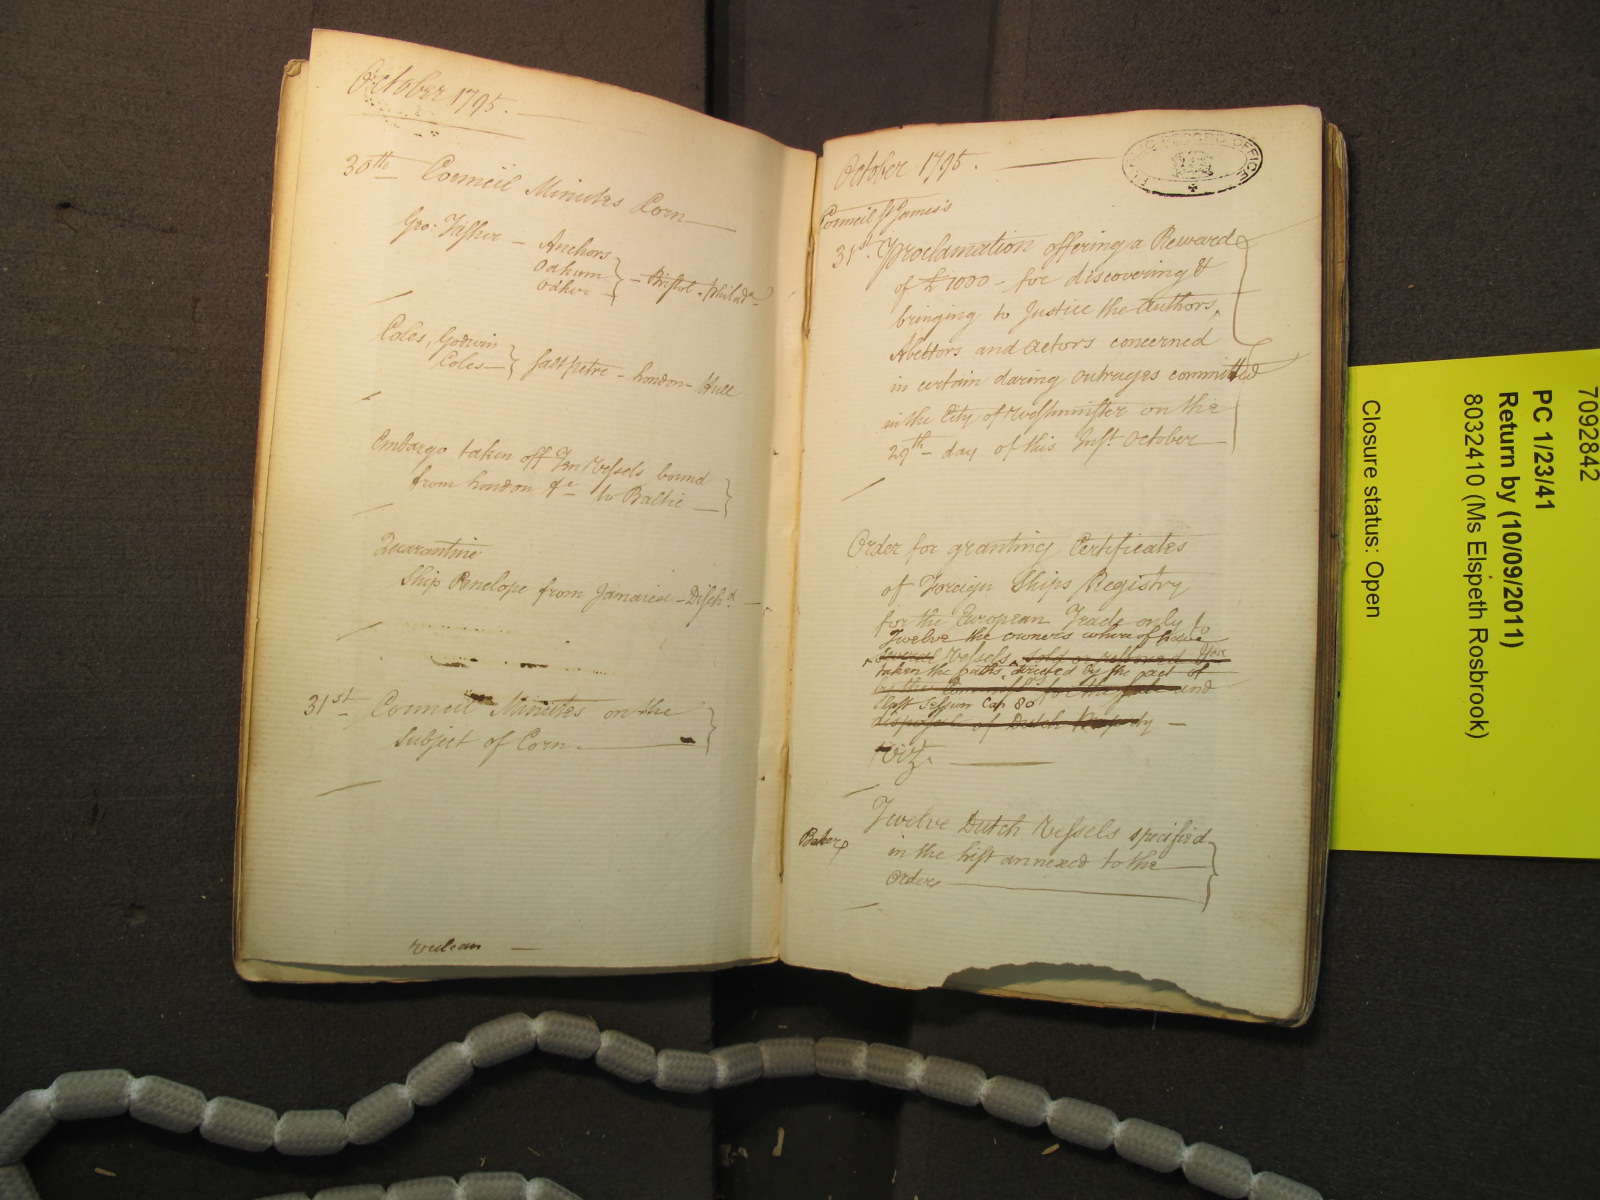 October 1795.
30th Council Minutes Corn
Geo: Fisher - Anchors
Oakum
- Bristol - Philada
Coles, Godwin
Coles - Saltpetre - London - Hull
Embargo taken off Ten Vessels bound
from London &c to Baltic
Quarantine
Ship Penelope from Jamaica - Dischd.
31st Council Minutes on the
Subject of Corn.
Vulcan
October 1795.
PUBLIC RECORD OFFICE
Council St James's
31st. Proclamation offering a Reward
of £1000 - for discovering &
bringing to Justice the Authors,
Abettors and Actors concerned
in certain daring outrages committed
in the City of Westminster on the
29th day of this Inst. October
Order for granting Certificates
of Foreign Ships Registry
for the European Trade only to
Twelve the owners whereof have
several Vessels, sold or
taken the oaths, directed by the act of
by the for the sale and
last Session Cap 80
disposal of Dutch Property
Viz.
Twelve Dutch Vessels specified
in the List annexed to the
Order
7092842
PC 1/23/41
Return by (10/09/2011)
8032410 (Ms Elspeth Rosbrook)
Closure status: Open